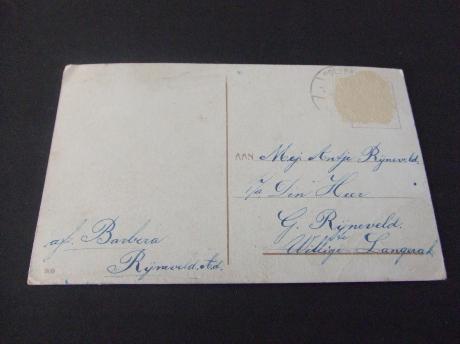 AAN Mej Antje Rijneveld.
p/a Den Heer
G. Rijneveld.
te
Willige Langerak
af. Barbera
Rijneveld.